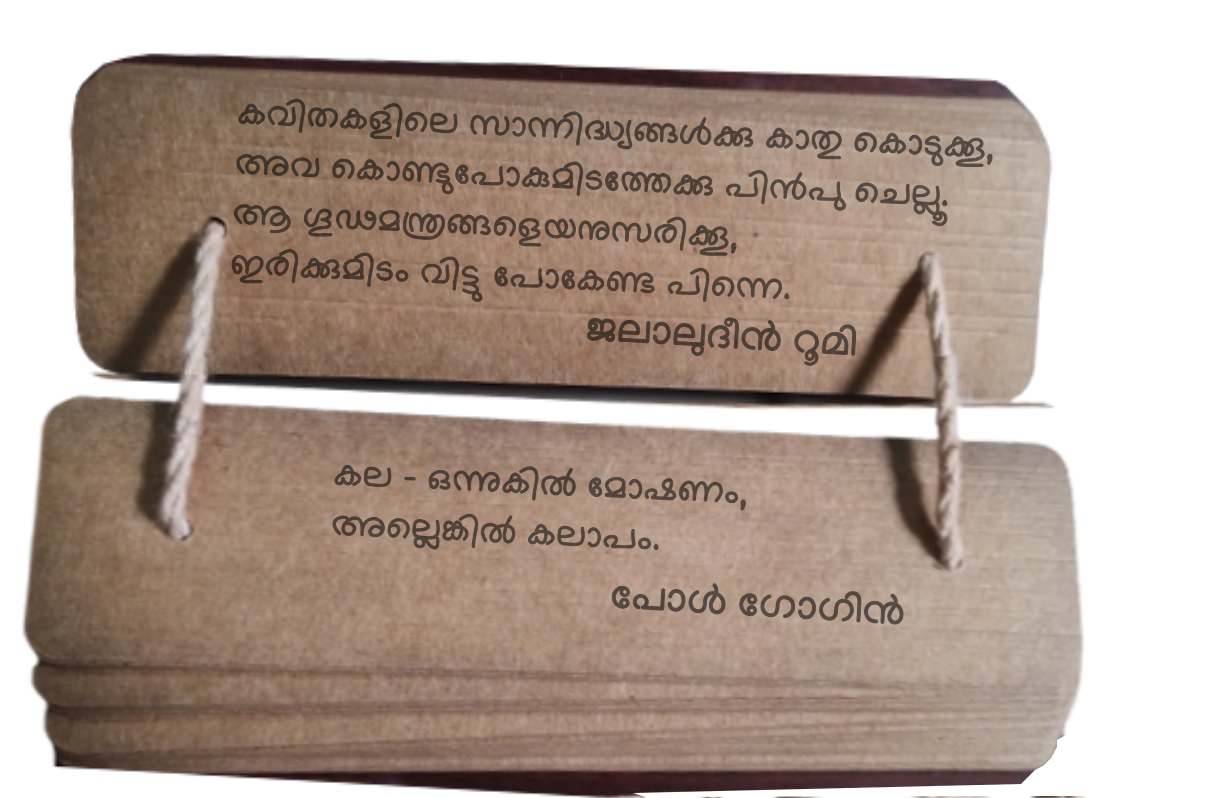 കവിതകളിലെ സാന്നിദ്ധ്യങ്ങൾക്കു കാതു കൊടുക്കൂ,
അവ കൊണ്ടുപോകുമിടത്തേക്കു പിൻപു ചെല്ലൂ.
ആ ഗൂഢമന്ത്രങ്ങളെയനുസരിക്കൂ,
ഇരിക്കുമിടം വിട്ടു പോകേണ്ട പിന്നെ.
ജലാലുദീൻ റൂമി
കല - ഒന്നുകിൽ മോഷണം,
അല്ലെങ്കിൽ കലാപം.
പോൾ ഗോഗിൻ